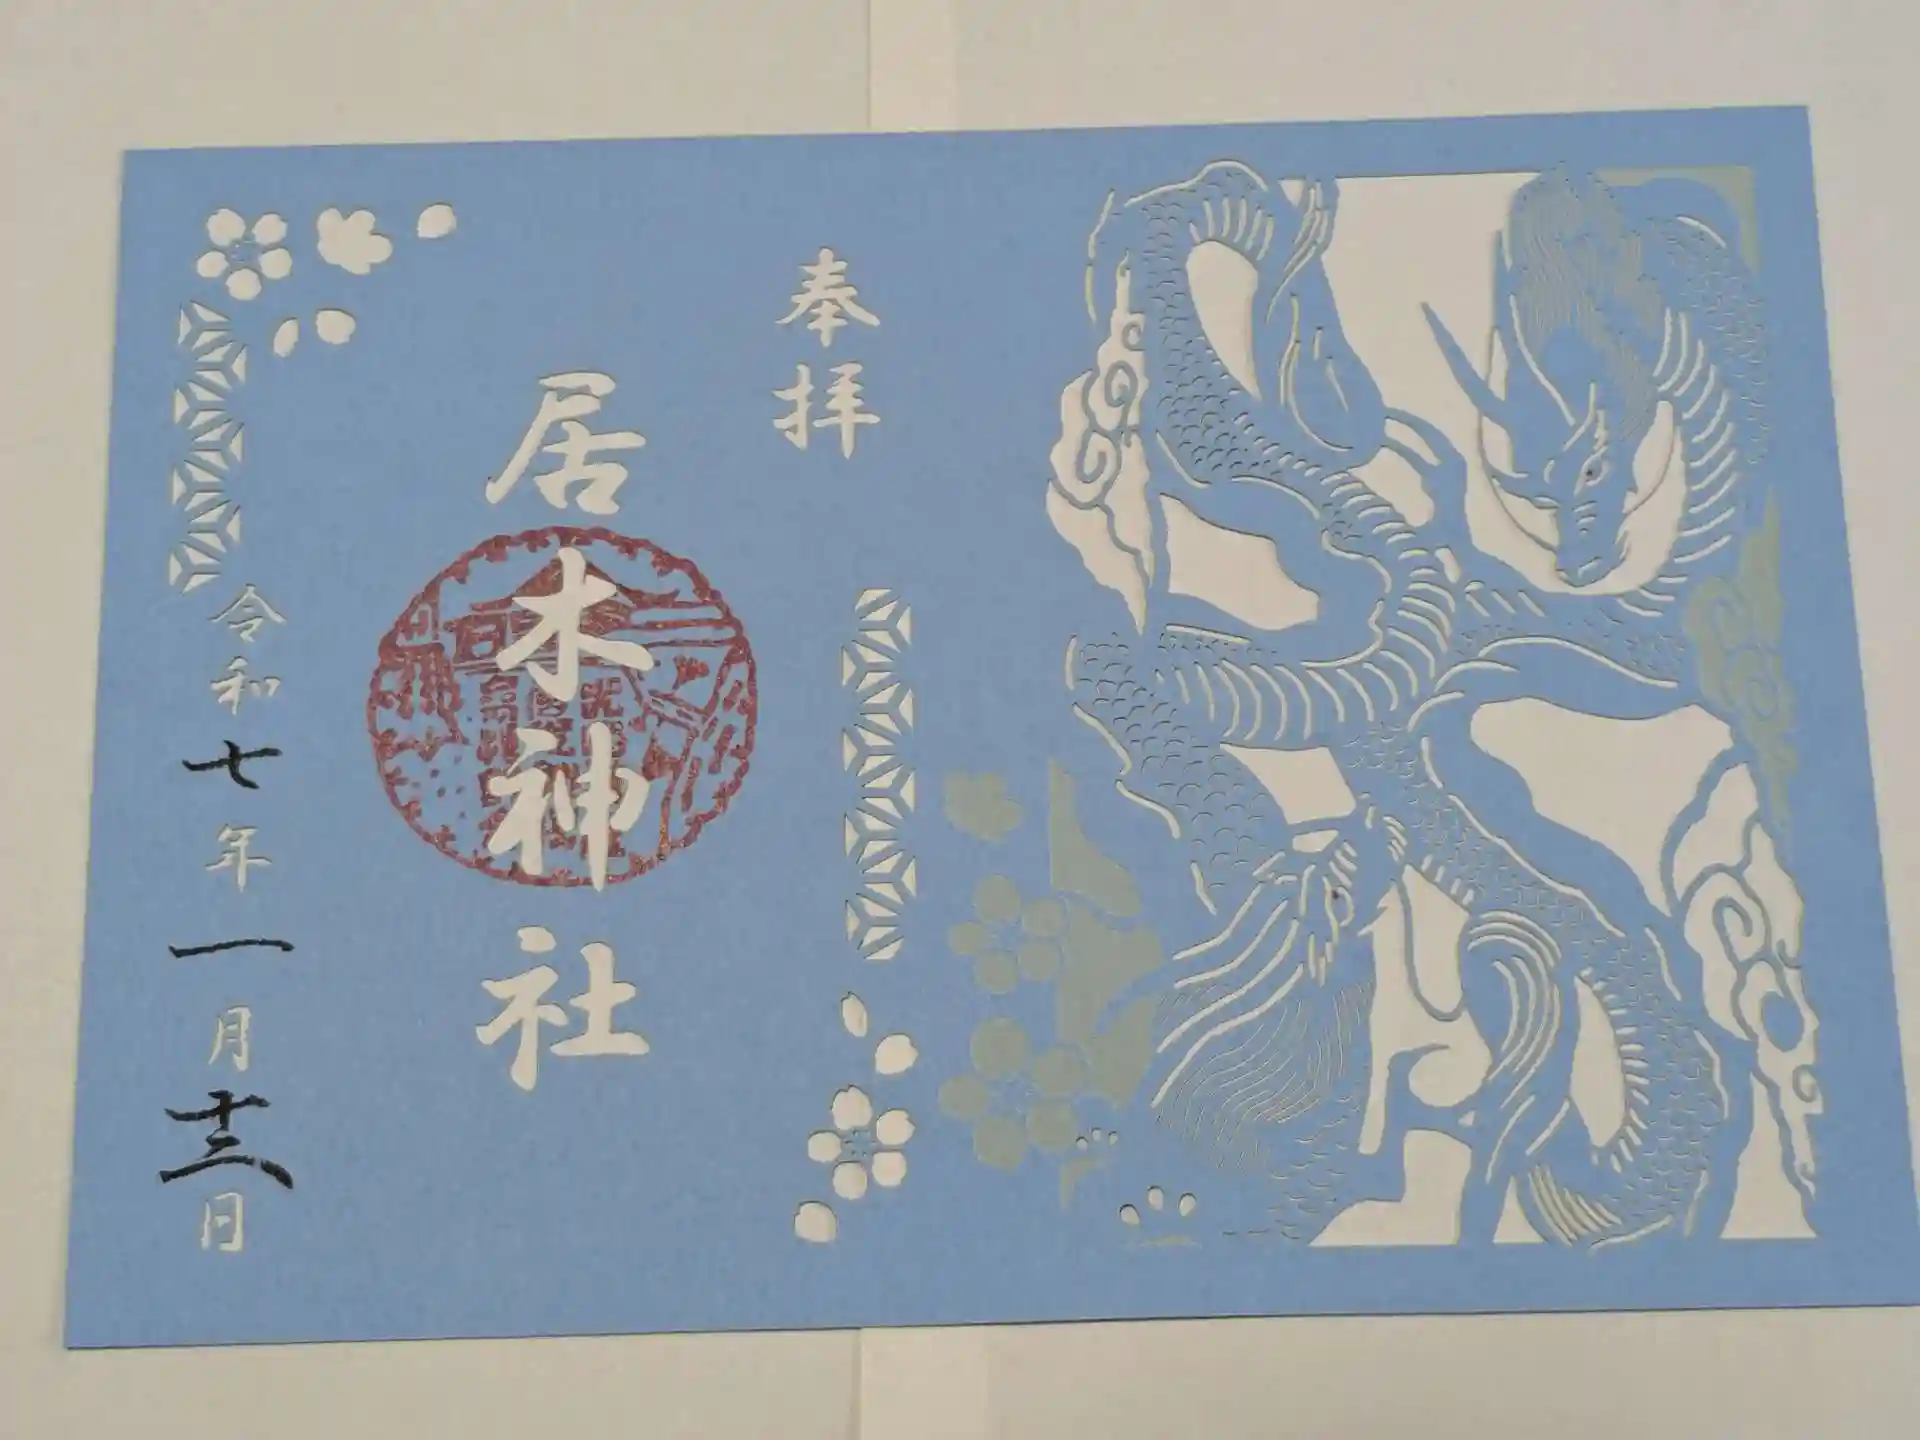 奉拝
居木神社
令和七年一月十三日